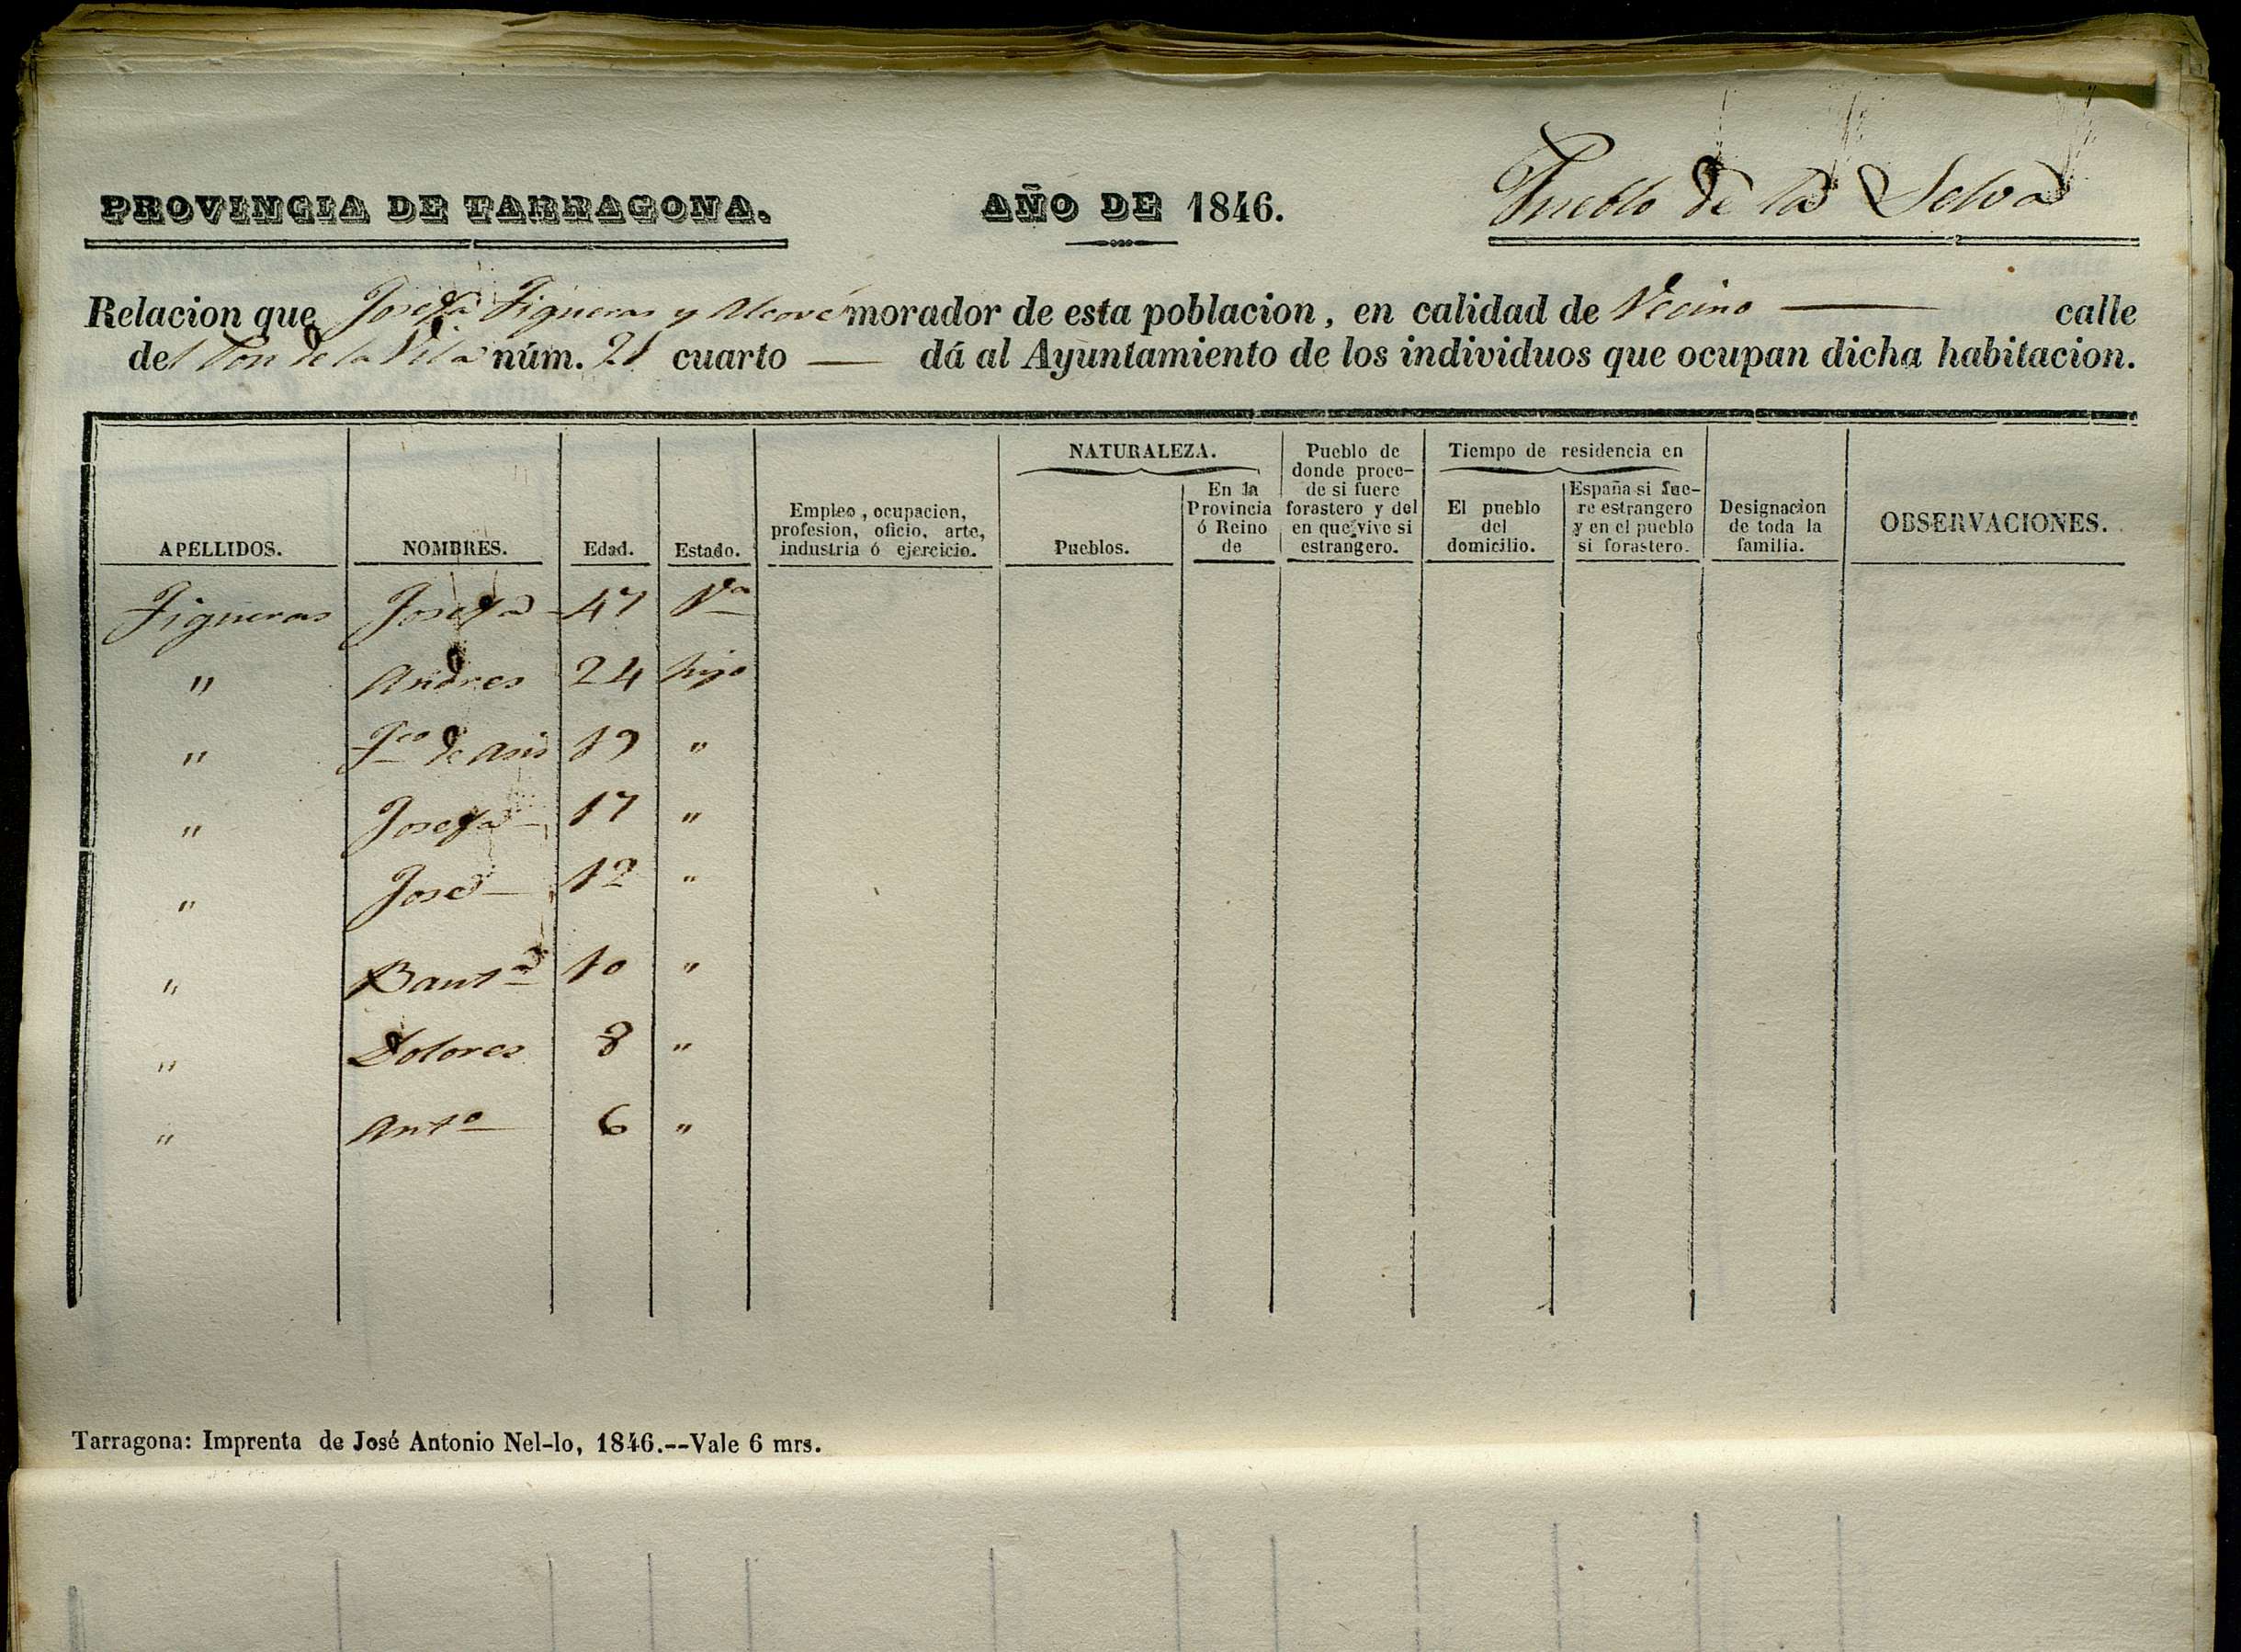 PROVINCIA DE TARRAGONA. AÑO DE 1846. Pueblo de la Selva
Relacion que Josefa Figueras y morador de esta poblacion, en calidad de Vecino — calle
del de la Vila núm. 21 cuarto — dá al Ayuntamiento de los individuos que ocupan dicha habitacion.
APELLIDOS. NOMBRES. Edad. Estado. Empleo, ocupacion, profesion, oficio, arte, industria ó ejercicio. NATURALEZA. Pueblos. En la Provincia ó Reino de Pueblo de donde procede si fuere forastero y del en que vive si estrangero. Tiempo de residencia en El pueblo del domicilio. España si fuere estrangero y en el pueblo si forastero. Designacion de toda la familia. OBSERVACIONES.
Figueras Josefa 47 Va
" Andres 24 hijo
" Fco de Asis 19 "
" Josefa 17 "
" José 12 "
" Bauta 10 "
" Dolores 8 "
" Anto 6 "
Tarragona: Imprenta de José Antonio Nel-lo, 1846.--Vale 6 mrs.